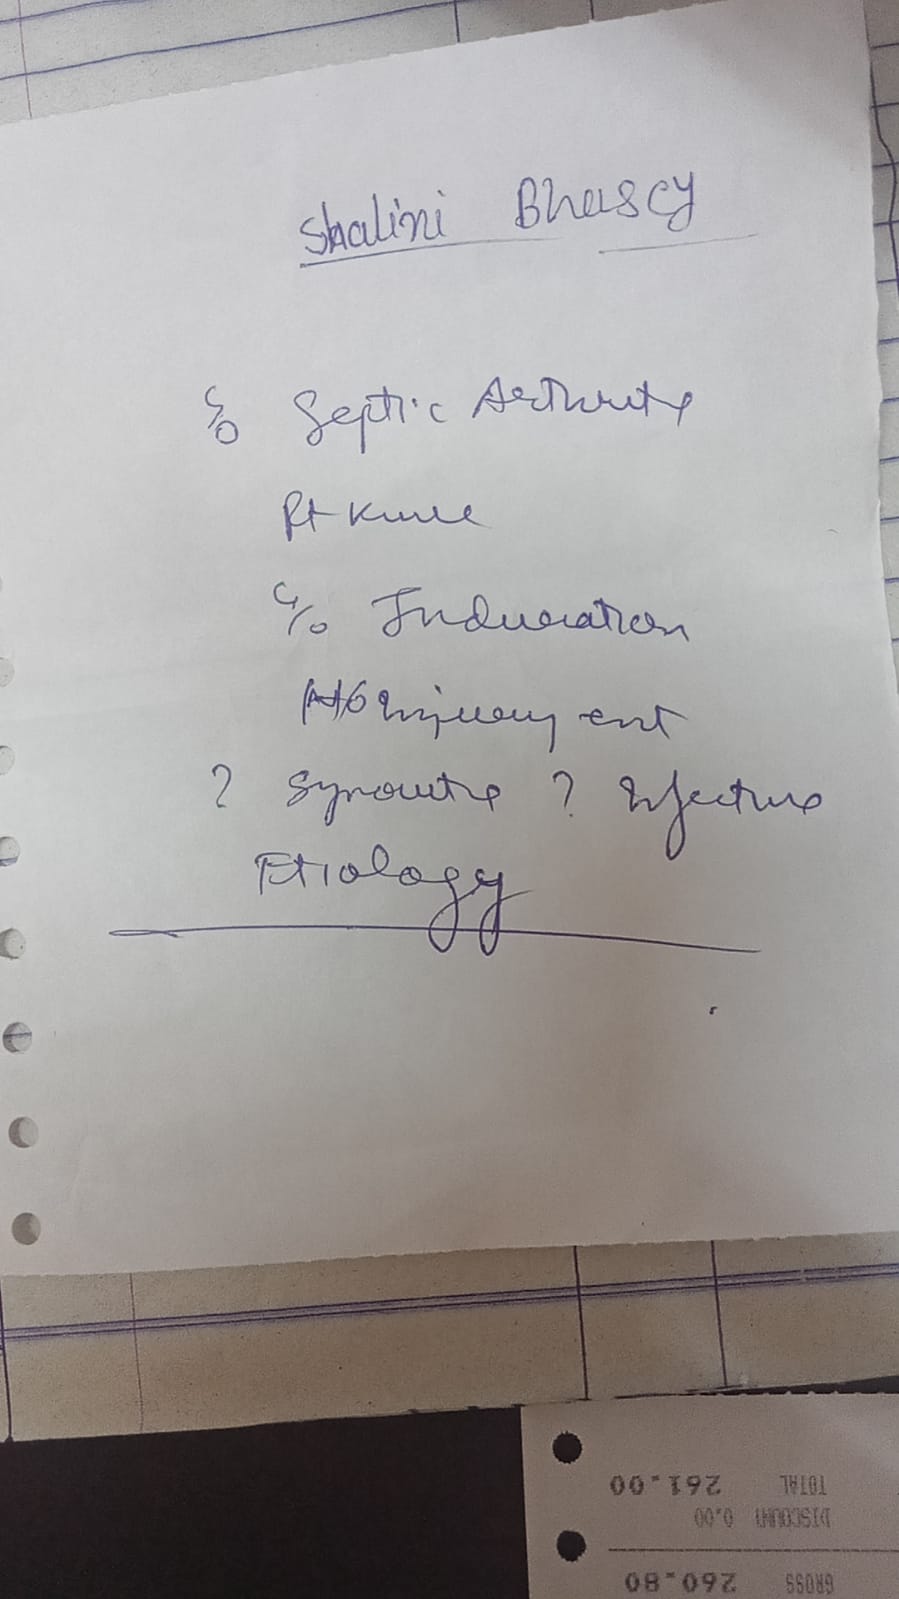 Shalini Bhuscy
Septic Arthritis
Rt Knee
c/o Induration
H/O injury
? Synovitis ? Infective
Etiology
TOTAL 261.00
DISCOUNT 0.00
GROSS 260.80